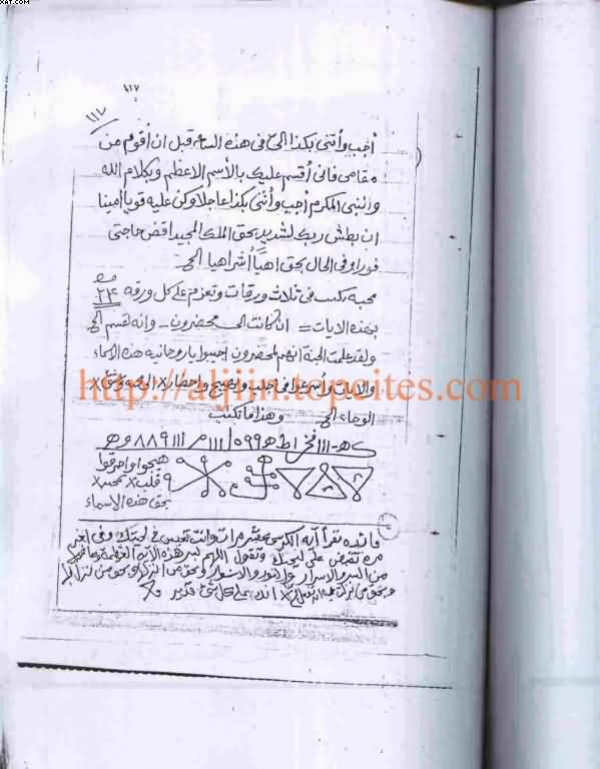 XAT.COM
١١٧
١١٧
أجب وأتنى بكذا الخ فى هذه الساعه قبل ان أقوم من
مقامى فانى أقسم عليك بالأسم الاعظم وبكلام الله
والنبى المكرم أجب وأتنى بكذا عاجلا وكن عليه قويا أمينا
ان بطش ربك لشديد بحق الملك المجيد اقض حاجتى
فورا وفى الحال بحق اهيا أشراهيا الخ
محبه تكتب فى ثلاث ورقات وتعزم على كل ورقه ٢٤
بهذه الايات = ان كانت الخ محضرون - وانه لقسم الخ
ولقد علمت الجنة انهم لمحضرون اجيبوا يا روحانيه هذه الاسماء
والايات وأسرعوا فى جلب وتهييج واحضار x الى محبه وعشق x
http://aljiin.topcites.com
الوحا الخ وهذا ما تكتب
هيجوا واحرقوا
قلب x بمحبة x
بحق هذه الاسماء
فائده تقرأ آية الكرسى عشر مرات وانت تقبض فى لحيتك وفى آخر
مره تقبض على لحيتك وتقول اللهم بسر هذه الآيه العظيمة وما فيها
من السر والاسرار والنور والانوار وبحق من انزلها وبحق من نزل بها
وبحق من انزلت عليه ان تفعل لى x انك على كل شئ قدير